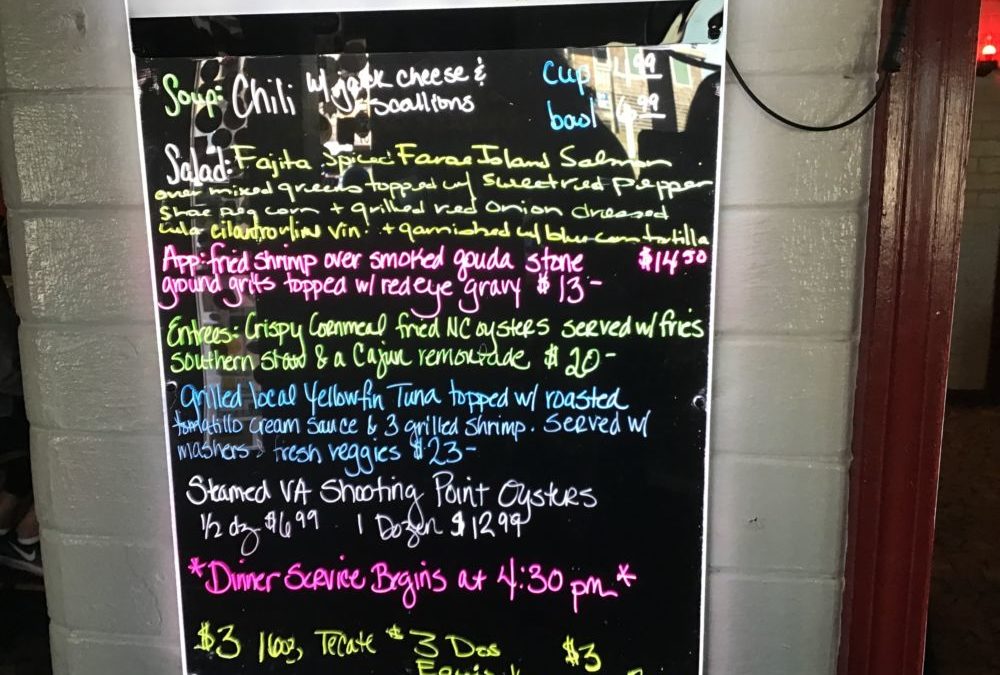 Soup: Chili w/ jack cheese &
scallions
Cup 4.99
bowl $6.99
Salad: Fajita Spiced Faroe Island Salmon
over mixed greens topped w/ sweet red pepper
corn + grilled red onion dressed
cilantro lime vin. + garnished w/ blue corn tortilla
$14.50
App: fried shrimp over smoked gouda stone
ground grits topped w/ redeye gravy $13-
Entrees: Crispy Cornmeal fried NC oysters served w/ fries
southern slaw & a Cajun remoulade $20-
Grilled local Yellowfin Tuna topped w/ roasted
tomatillo cream sauce & 3 grilled shrimp. Served w/
mashers & fresh veggies $23-
Steamed VA Shooting Point Oysters
1/2 dz $6.99 1 Dozen $12.99
*Dinner Service Begins at 4:30 pm*
$3 16oz, Tecate $3 Dos $3